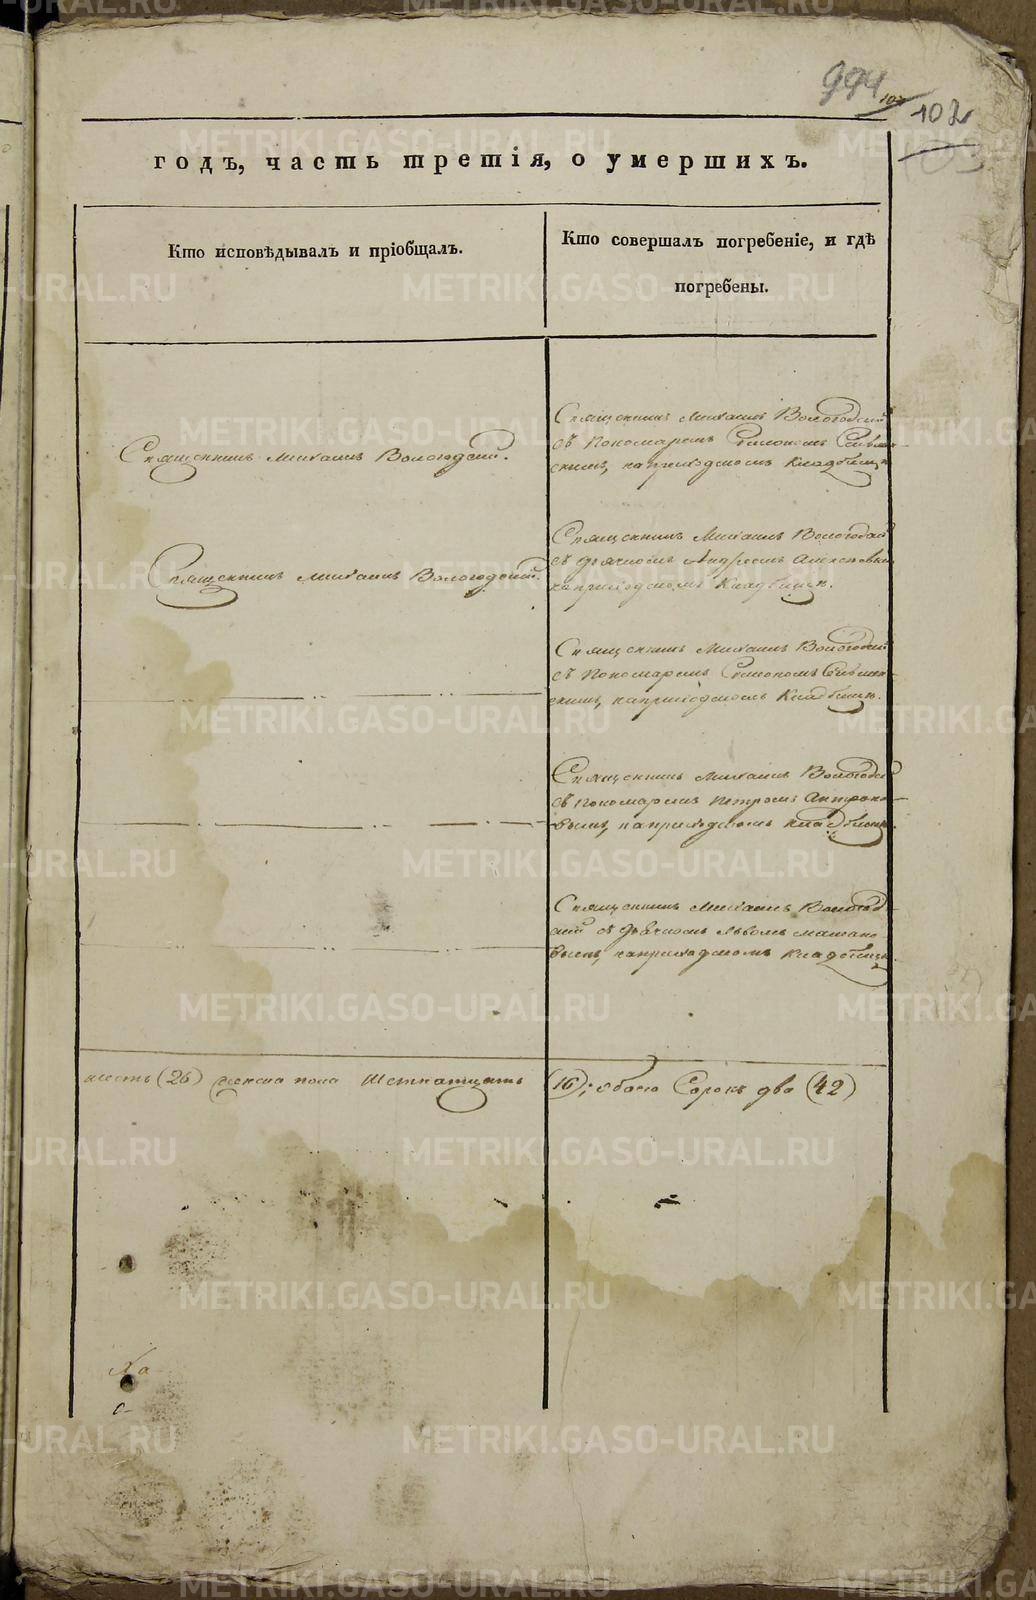 994
102
годъ, часть третія, о умершихъ.
Кто исповѣдывалъ и пріобщалъ.
Кто совершалъ погребеніе, и гдѣ
погребены.
Священникъ Михаилъ Вологодскій.
Священникъ Михаилъ Вологодскій
съ пономаремъ Симономъ
скимъ, на приходскомъ Кладбищѣ
Священникъ Михаилъ Вологодскій.
Священникъ Михаилъ Вологодскій
съ дьячкомъ Андреемъ
на приходскомъ Кладбищѣ.
Священникъ Михаилъ Вологодскій
съ пономаремъ Симономъ
скимъ, на приходскомъ Кладбищѣ.
Священникъ Михаилъ Вологодскій
съ пономаремъ Петромъ Антроно-
вымъ, на приходскомъ Кладбищѣ.
Священникъ Михаилъ Вологод-
скій съ дьячкомъ Львомъ
вымъ, на приходскомъ Кладбищѣ.
шесть (26) женска пола Шестнатцать (16); обоего Сорокъ два (42)
METRIKI.GASO-URAL.RU